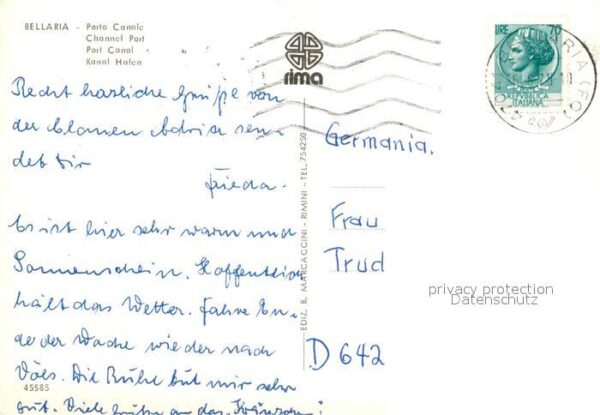 BELLARIA - Porto Canale
Channel Port
Port Canal
Kanal Hafen
rima
LIRE 70
REPUBBLICA
ITALIANA
Recht herzliche Grüße von
der blauen Adria sen-
det Dir
Frieda.
Es ist hier sehr warm und
Sonnenschein. Hoffentlich
hält das Wetter. Fahre En-
de der Woche wieder nach
Die Ruhe tut mir sehr
gut. Viele Grüße an das
45585
EDIZ. B. MARCACCINI - RIMINI - TEL. 754250
Germania.
Frau
Trud
D 642
privacy protection
Datenschutz